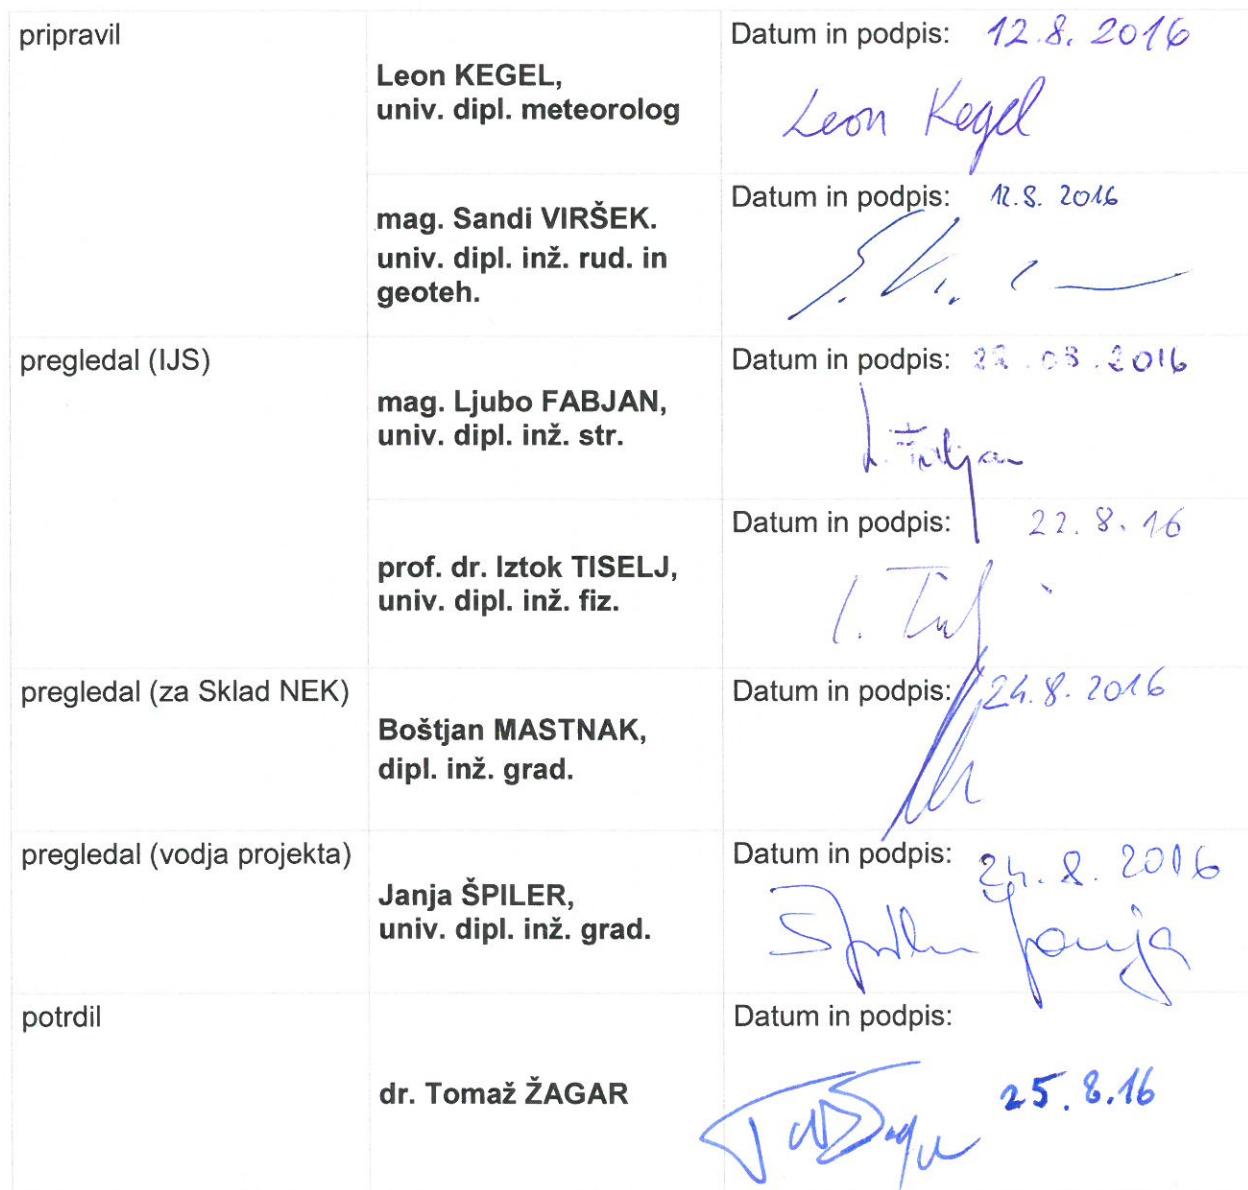 pripravil
Leon KEGEL,
univ. dipl. meteorolog
Datum in podpis: 12.8. 2016
Leon Kegel
mag. Sandi VIRŠEK.
univ. dipl. inž. rud. in
geoteh.
Datum in podpis: 12.8. 2016
pregledal (IJS)
mag. Ljubo FABJAN,
univ. dipl. inž. str.
Datum in podpis: 22.08.2016
L. Fabjan
prof. dr. Iztok TISELJ,
univ. dipl. inž. fiz.
Datum in podpis: 22. 8. 16
pregledal (za Sklad NEK)
Boštjan MASTNAK,
dipl. inž. grad.
Datum in podpis: 24.8. 2016
pregledal (vodja projekta)
Janja ŠPILER,
univ. dipl. inž. grad.
Datum in podpis: 24. 8. 2016
Špiler Janja
potrdil
dr. Tomaž ŽAGAR
Datum in podpis:
25.8.16